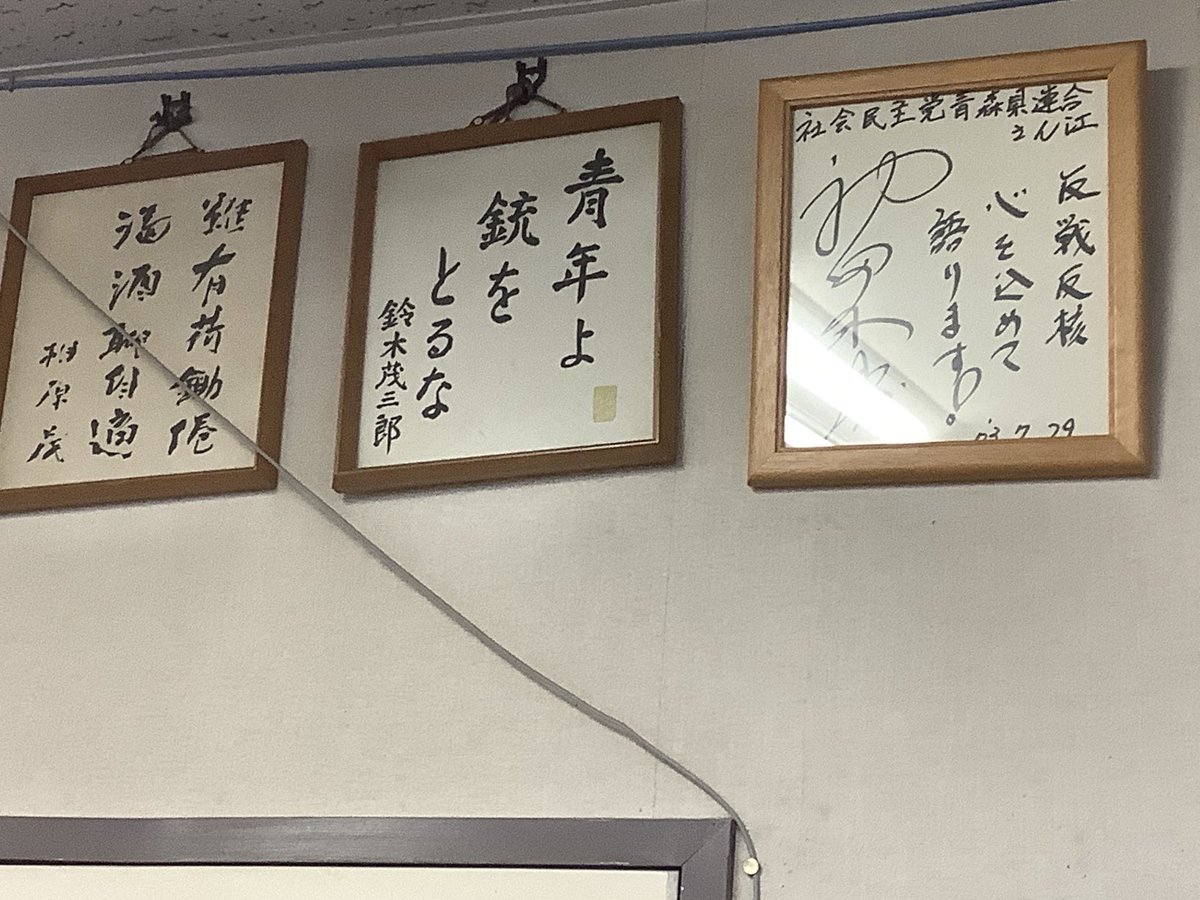 社会民主党青森県連合
さん江
反戦反核
心を込めて
語ります!。
03.7.29
青年よ
銃を
とるな
鈴木茂三郎
雖有荷鋤倦
濁酒聊自適